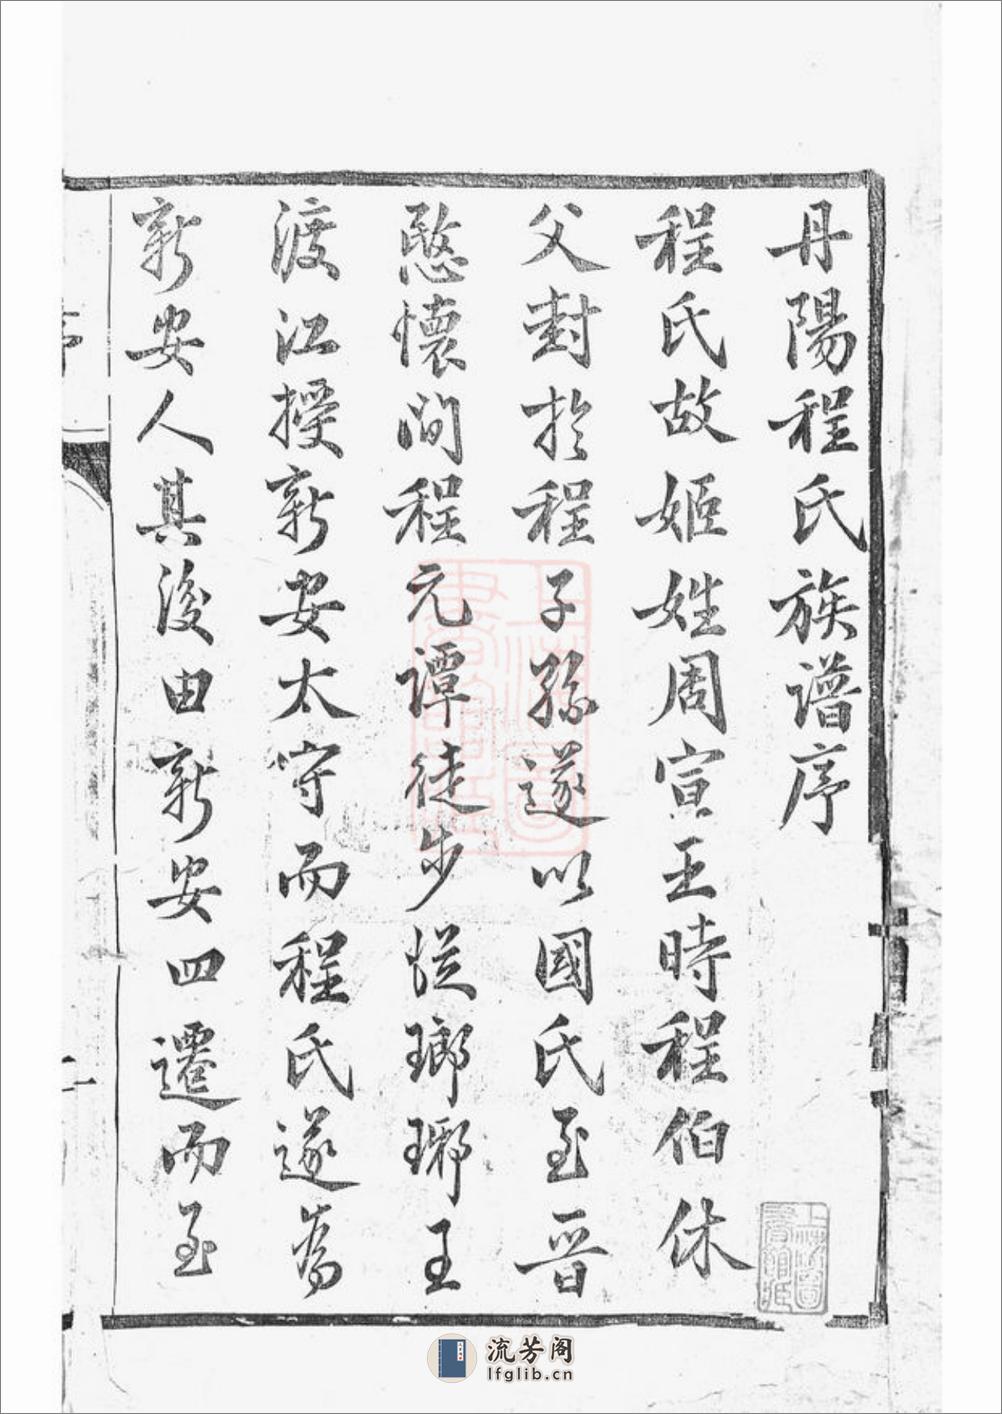 丹陽程氏族譜序
程氏故姬姓周宣王時程伯休
父封於程子孫遂以國氏至晉
愍懷間程元譚徒步從瑯琊王
渡江授新安太守而程氏遂爲
新安人其後由新安四遷而至
上海圖書館藏
流芳阁
lfglib.cn